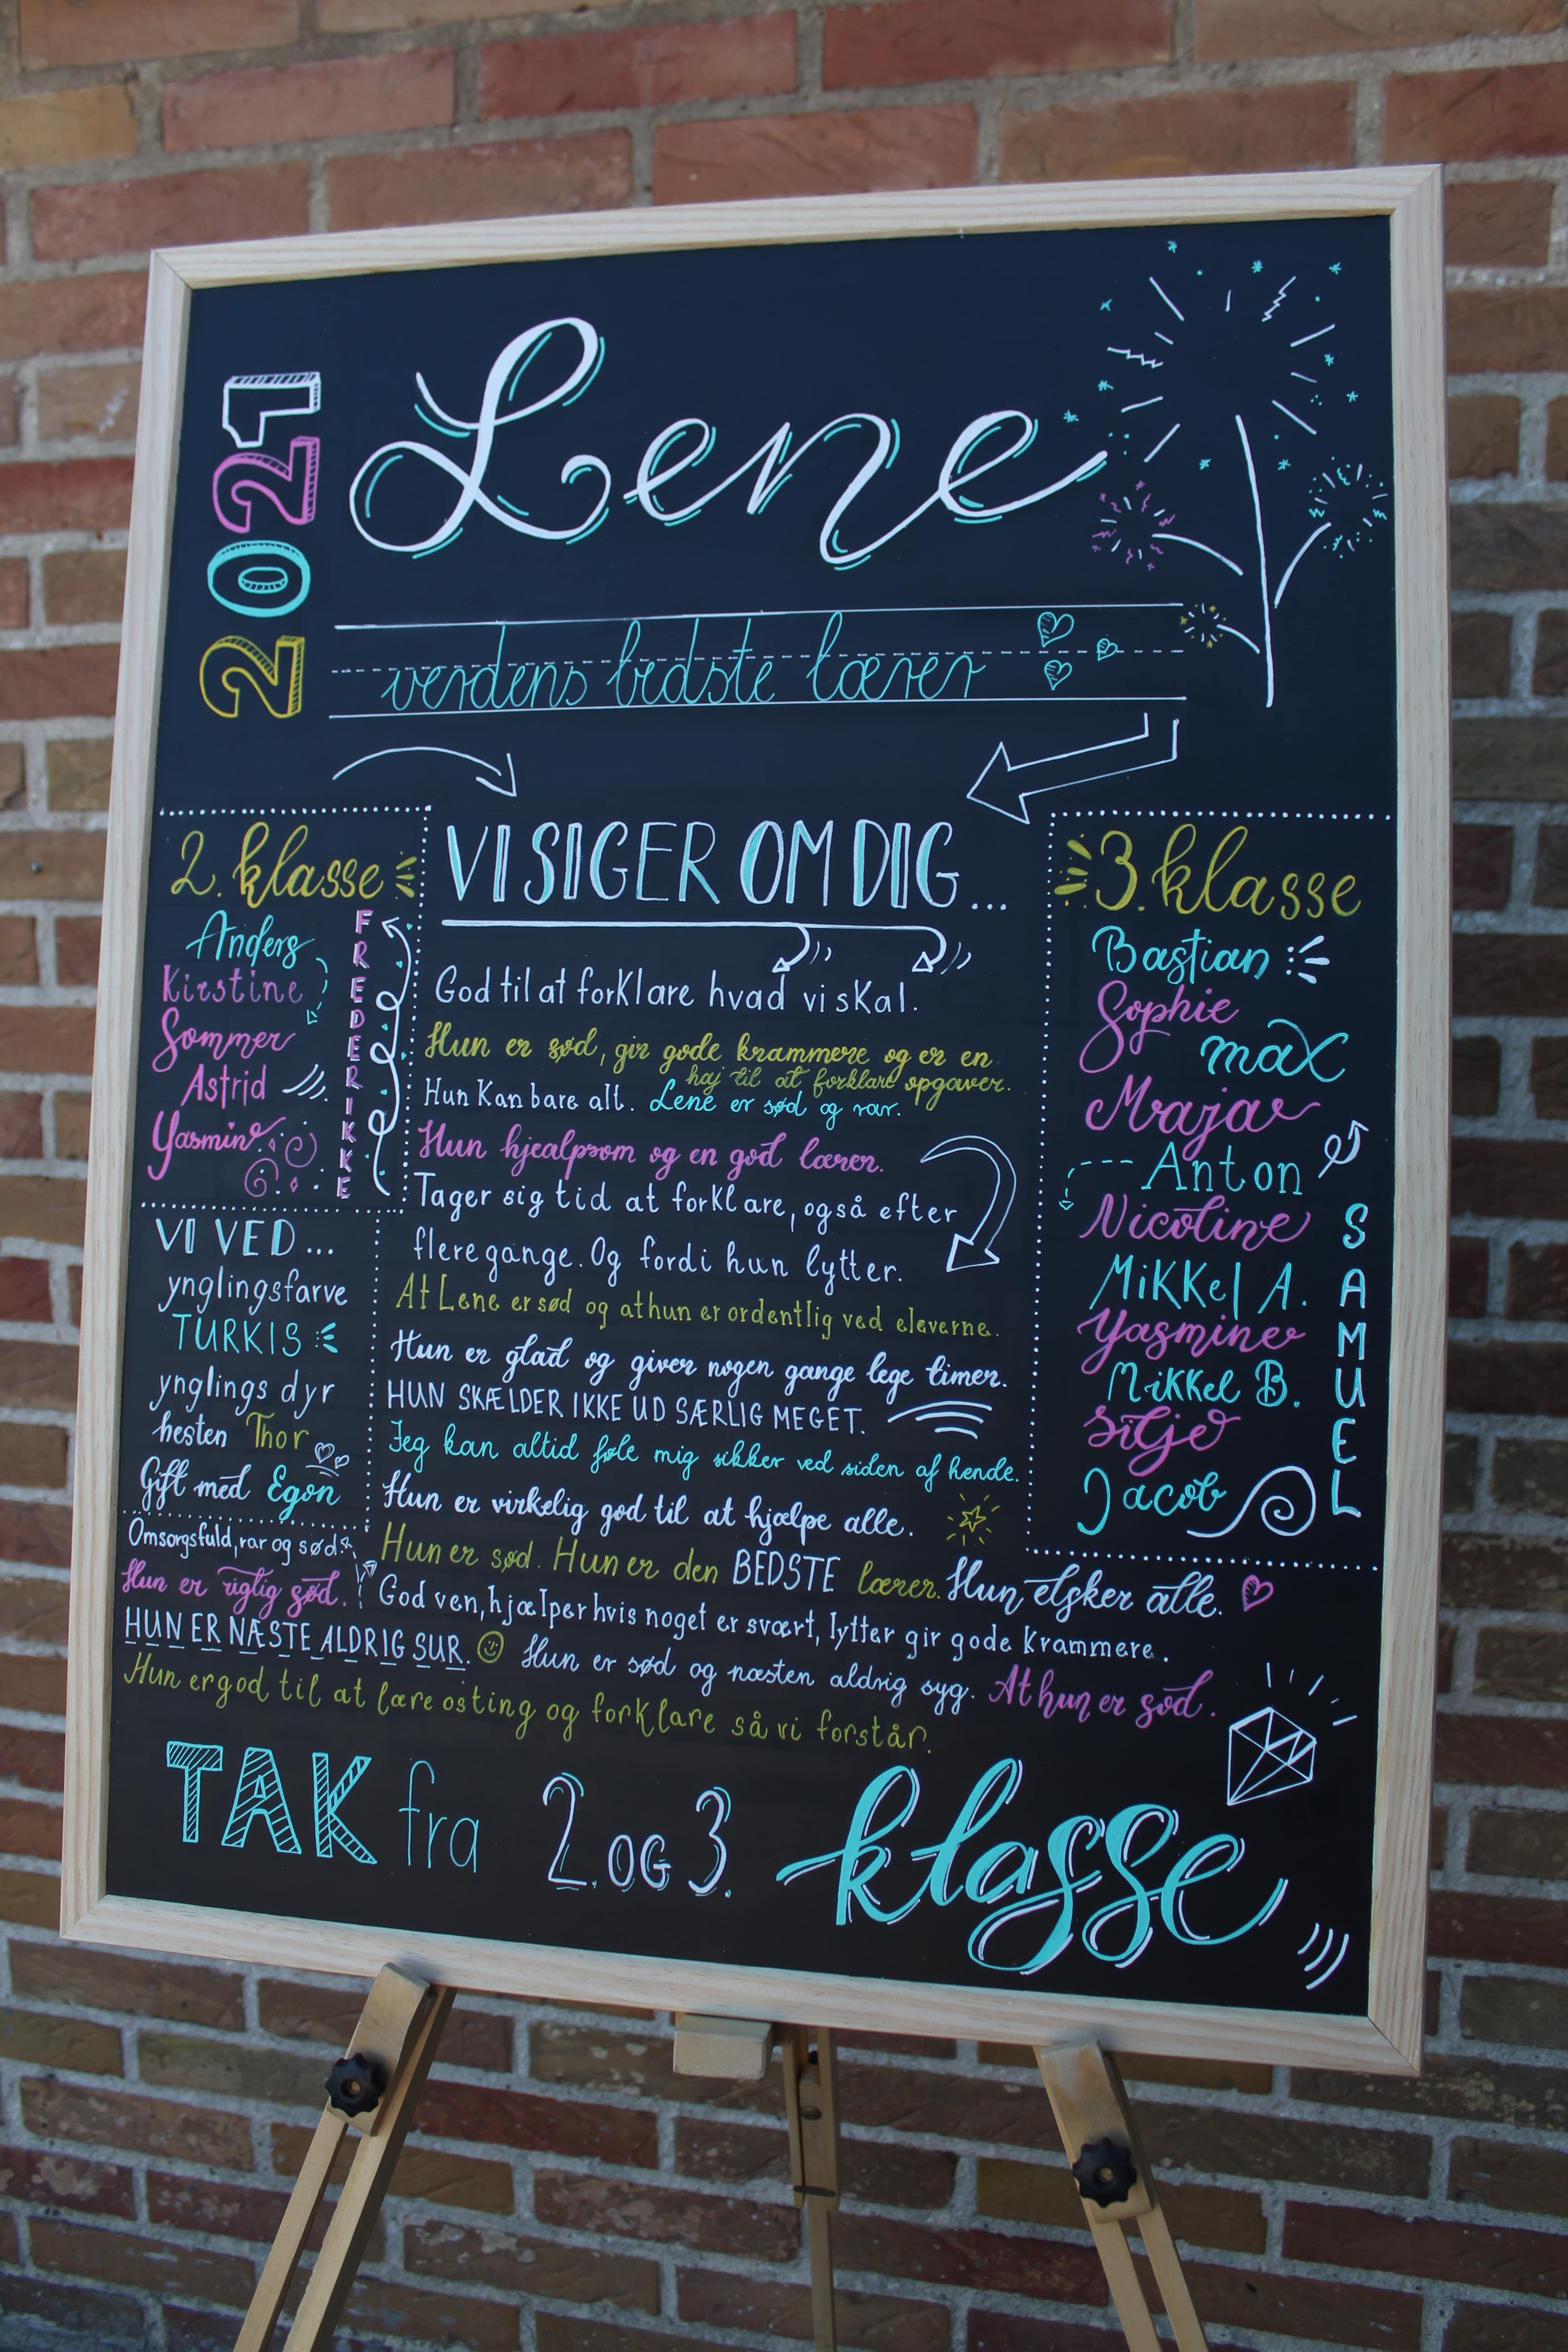 2021
Lene
verdens bedste lærer
2. klasse
Anders
Kirstine
Sommer
Astrid
Yasmine
FREDERIKKE
VI VED...
ynglingsfarve
TURKIS
ynglings dyr
hesten Thor
Gift med Egon
VI SIGER OM DIG...
God til at forklare hvad vi skal.
Hun er sød, gir gode krammere og er en
haj til at forklare opgaver.
Hun kan bare alt. Lene er sød og rar.
Hun hjealpsom og en god lærer.
Tager sig tid at forklare, også efter
flere gange. Og fordi hun lytter.
At Lene er sød og at hun er ordentlig ved eleverne.
Hun er glad og giver nogen gange lege timer.
HUN SKÆLDER IKKE UD SÆRLIG MEGET.
Jeg kan altid føle mig sikker ved siden af hende.
Hun er virkelig god til at hjælpe alle.
3. klasse
Bastian
Sophie
max
Maja
Anton
Nicoline
Mikkel A.
Yasmine
Mikkel B.
Silje
Jacob
SAMUEL
Omsorgsfuld, rar og sød
Hun er sød. Hun er den BEDSTE lærer. Hun elsker alle.
Hun er rigtig sød.
God ven, hjælper hvis noget er svært, lytter gir gode krammere.
HUN ER NÆSTE ALDRIG SUR. Hun er sød og næsten aldrig syg. At hun er sød.
Hun er god til at lære os ting og forklare så vi forstår.
TAK fra 2. OG 3. klasse